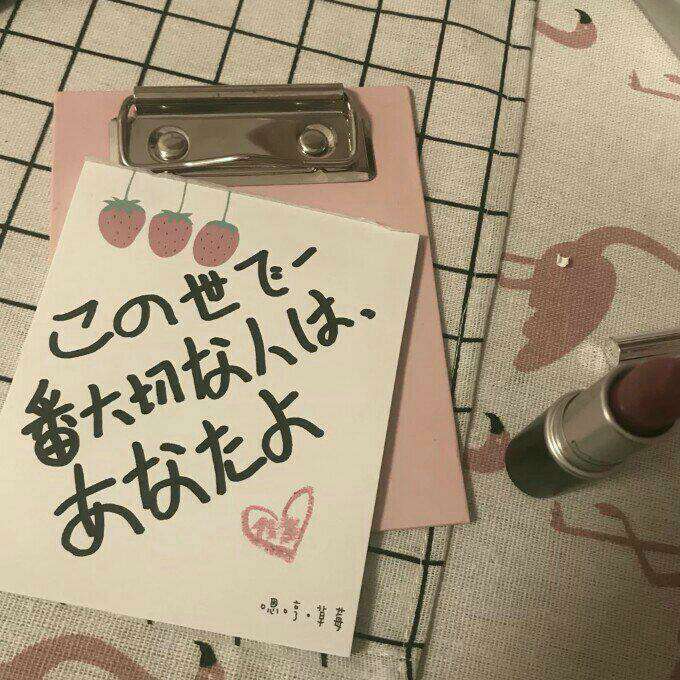 この世で一
番大切な人は、
あなたよ
恩。亨。草莓